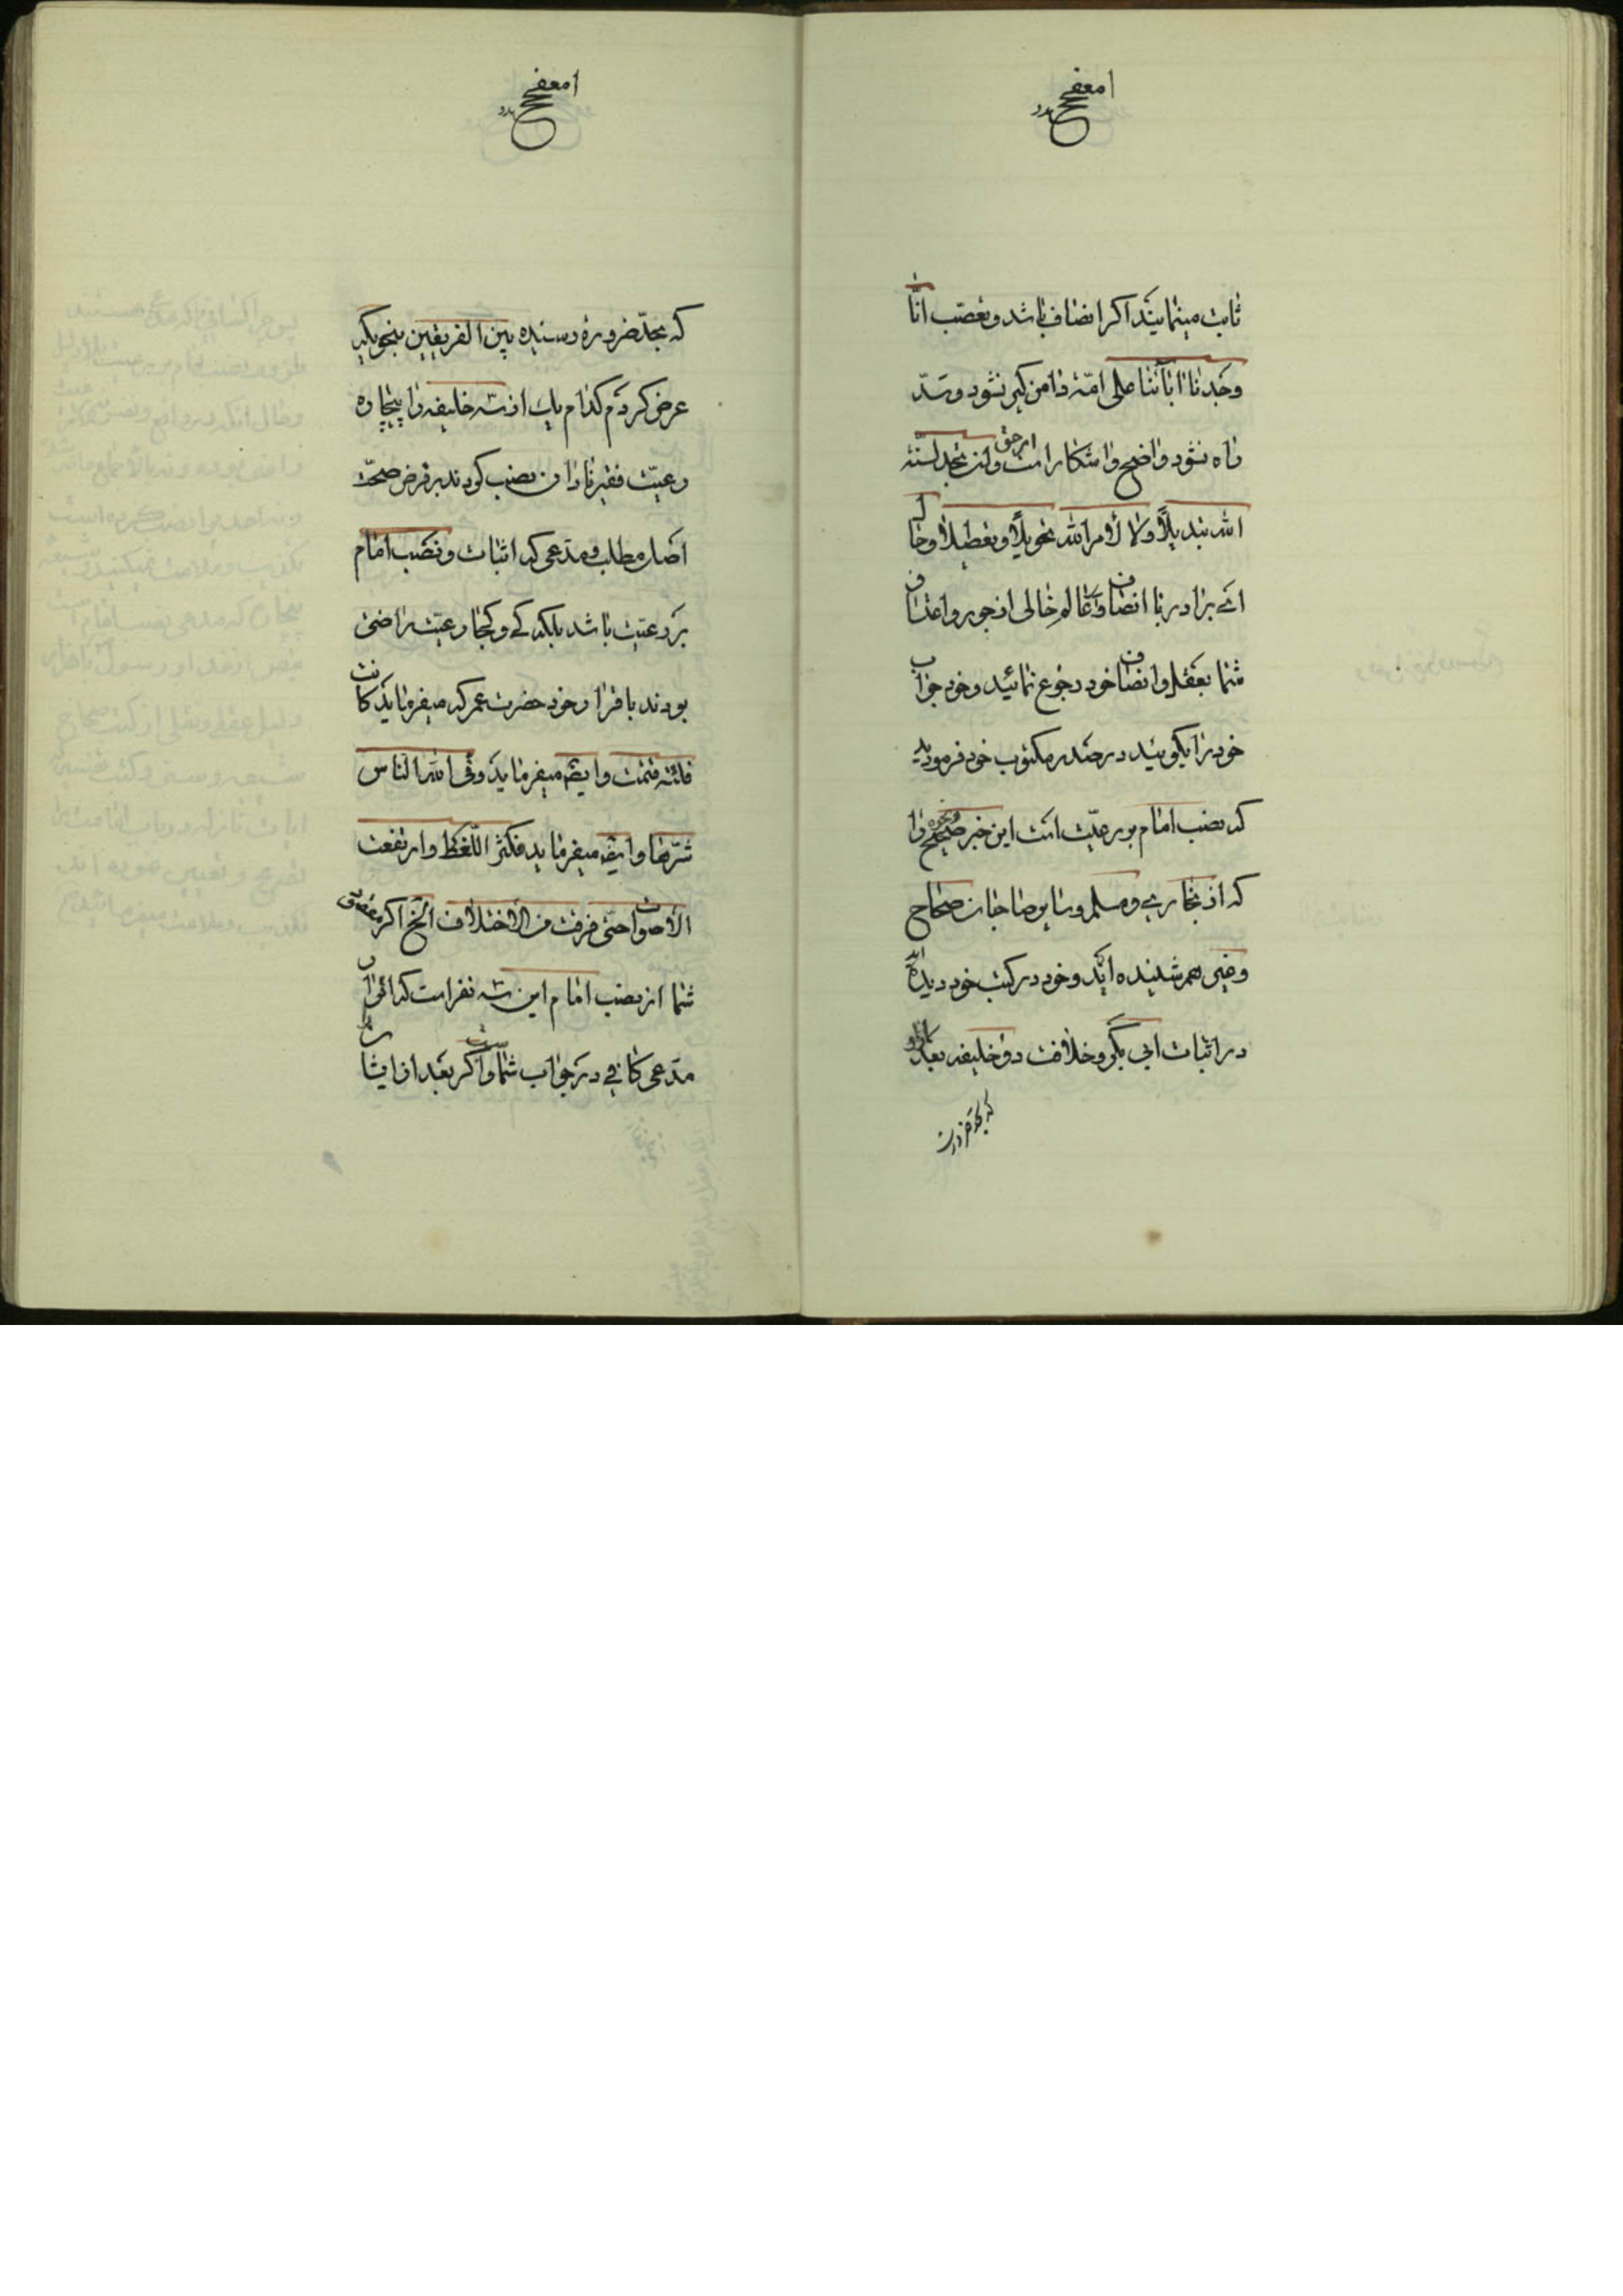 ثابت مینمایند اکر انصاف باشد و تعصّب انّا
وجدنا اباٰئنا علی امّة دامن کیر نشود و سدّ
راه نشود واضح و اشکار است امر حق و لن تجد لسنّة
الله تبدیلاً و لا لأمر الله تحویلاً و تعطیلاً و حال
ای برادر با انصاف و عالم خالی از جور و اعتساف
شما بعقل و انصاف خود رجوع نمائید و خود جواب
خود را بکوئید در صدر مکتوب خود فرمودید
که نصب امام بر رعیّت است این خبر صحیح را
که از بخاری و مسلم و سایر صاحبان صحاح
و غیر هم شنیده اید و خود در کتب خود دیده اید
در اثبات ابی بکر و خلافت دو خلیفه بعد از او
که بحد ضرورت
که بحدّ ضرورة رسیده بین الفریقین بنحویکه
عرض کردم کدام یك از سه خلیفه را بیچاره
رعیّت فقیر نادان نصب کردند بر فرض صحّت
اصل مطلب و مدّعی که اثبات و نصب امام
بر رعیّت باشد بلکه کی و کجا رعیّت راضی
بودند باقرار خود حضرت عمر که میفرماید کانت
فلتة فتمّت و ایضا میفرماید وقی الله الناس
شرّها و ایضا میفرماید فکثر اللّغط و ارتفعت
الأصوات حتّی فرقت من الأختلاف الخ اکر مقصود
شما از نصب امام این سه نفر است که ائی
مدّعی کافی در جواب شما و اکر بعد از ایشان